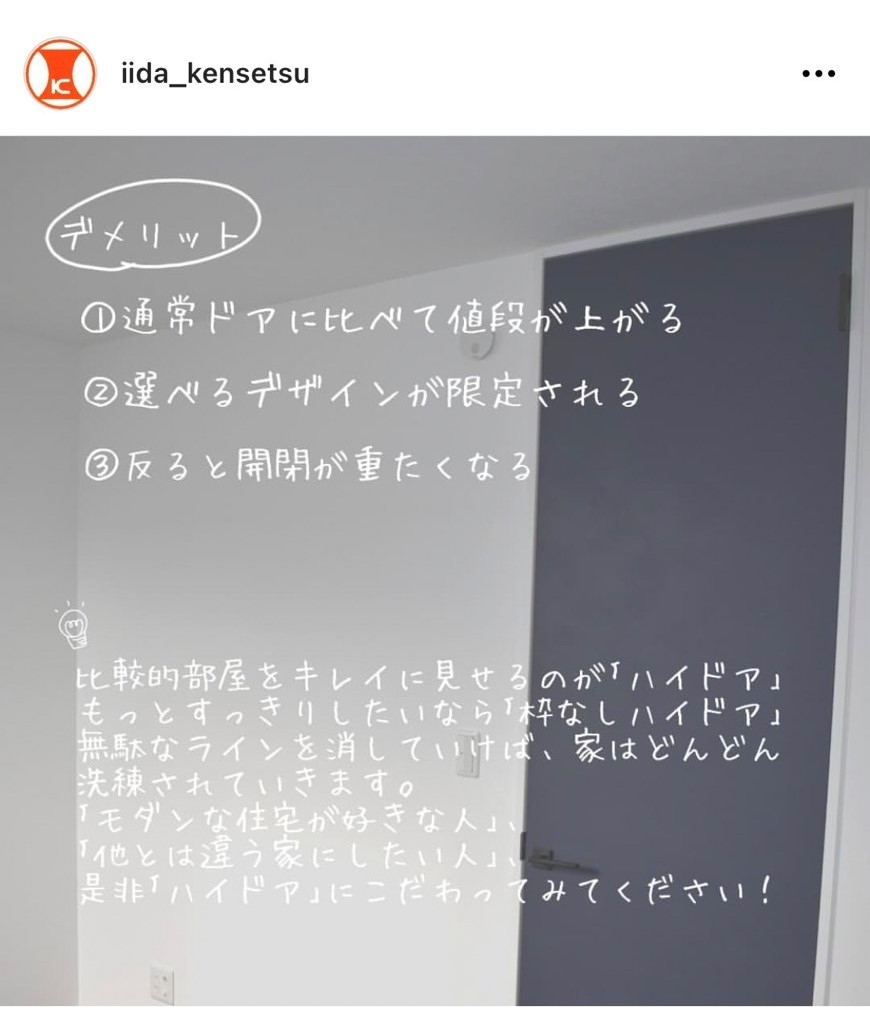 iida_kensetsu
デメリット
①通常ドアに比べて値段が上がる
②選べるデザインが限定される
③反ると開閉が重たくなる
比較的部屋をキレイに見せるのが「ハイドア」
もっとすっきりしたいなら「枠なしハイドア」
無駄なラインを消していけば、家はどんどん
洗練されていきます。
「モダンな住宅が好きな人」、
「他とは違う家にしたい人」、
是非「ハイドア」にこだわってみてください！